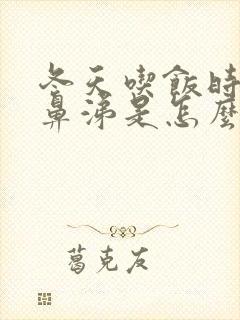 冬天喫飯時
鼻涕是怎麼
葛克友